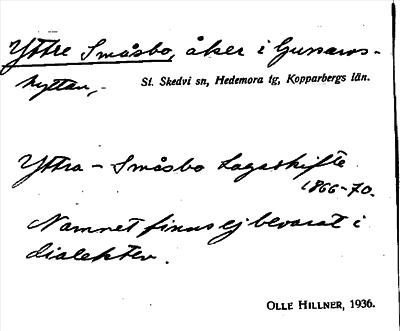 Yttre Småsbo, åker i Gussarvs-
hyttan,-
St. Skedvi sn, Hedemora tg, Kopparbergs län.
Yttra - Småsbo Lagaskifte
1866-70.
Namnet finns ej bevarat i
dialekten.
OLLE HILLNER, 1936.